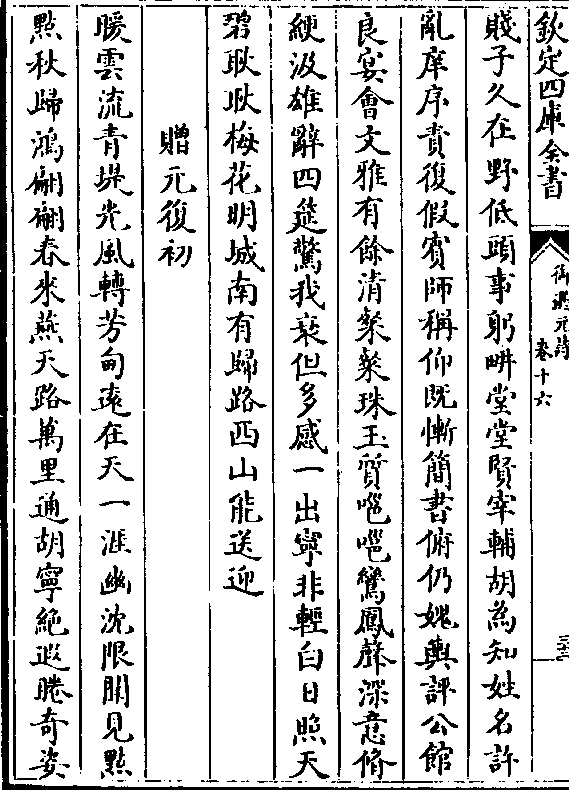 欽定四庫全書
御選元詩
卷十六
三
賤子久在野低頭事躬畊堂堂賢宰輔胡為知姓名許
亂庠序責復假賓師稱仰既慚簡書俯仍媿輿評公館
良宴會文雅有餘清粲粲珠玉質嗈嗈鸞鳳聲深意脩
綆汲雄辭四筵驚我衰但多感一出寧非輕白日照天
碧耿耿梅花明城南有歸路西山能送迎
贈元復初
暖雲流青堤光風轉芳甸遠在天一涯幽沈限關見點
點秋歸鴻翩翩春來燕天路萬里通胡寧絶遐睠奇姿